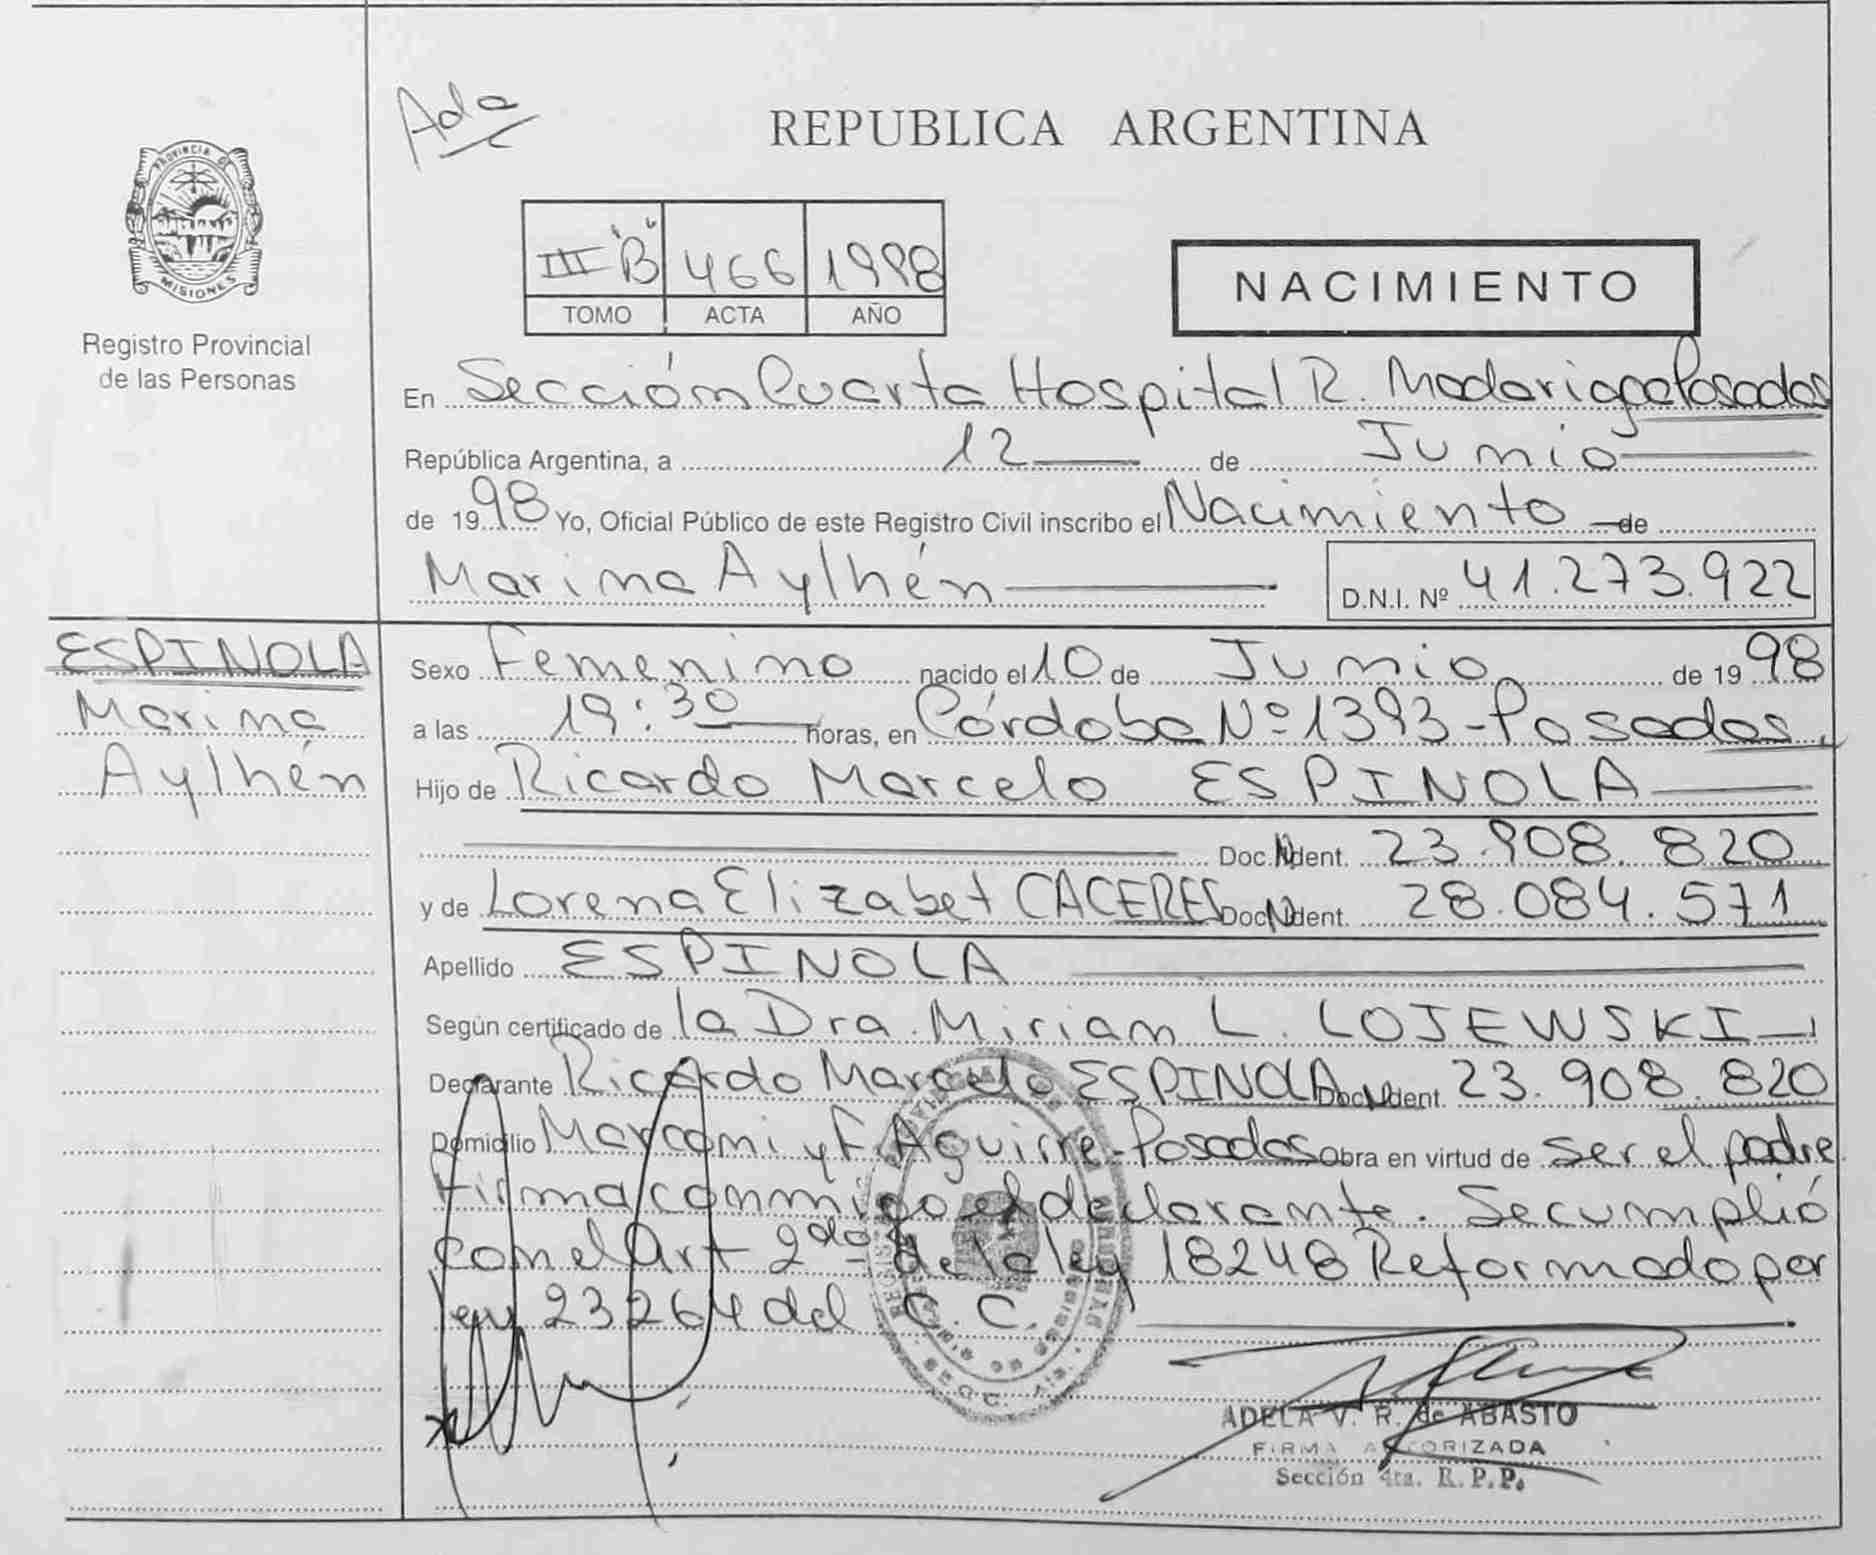 Ada
REPUBLICA ARGENTINA
PROVINCIA DE
MISIONES
Registro Provincial
de las Personas
III "B" 466 1998
TOMO ACTA AÑO
NACIMIENTO
En Sección Cuarta Hospital R. Madariaga Posadas
República Argentina, a 12 de Junio
de 1998 Yo, Oficial Público de este Registro Civil inscribo el Nacimiento de
Marina Aylhén D.N.I. Nº 41.273.922
ESPINOLA
Marina
Aylhén
Sexo Femenino nacido el 10 de Junio de 1998
a las 19:30 horas, en Córdoba Nº 1393-Posadas.
Hijo de Ricardo Marcelo ESPINOLA
Doc. Ident. 23.908.820
y de Lorena Elizabet CACERES Doc. Ident. 28.084.571
Apellido ESPINOLA
Según certificado de la Dra. Miriam L. LOJEWSKI
Declarante Ricardo Marcelo ESPINOLA Doc. Ident. 23.908.820
Domicilio Marconi y F. Aguirre-Posadas Obra en virtud de ser el padre
Firma conmigo el declarante. Se cumplió
con el Art 2do de la ley 18248 Reformado por
ley 23264 del C.C.
ADELA V. R. de ABASTO
FIRMA AUTORIZADA
Sección 4ta. R.P.P.